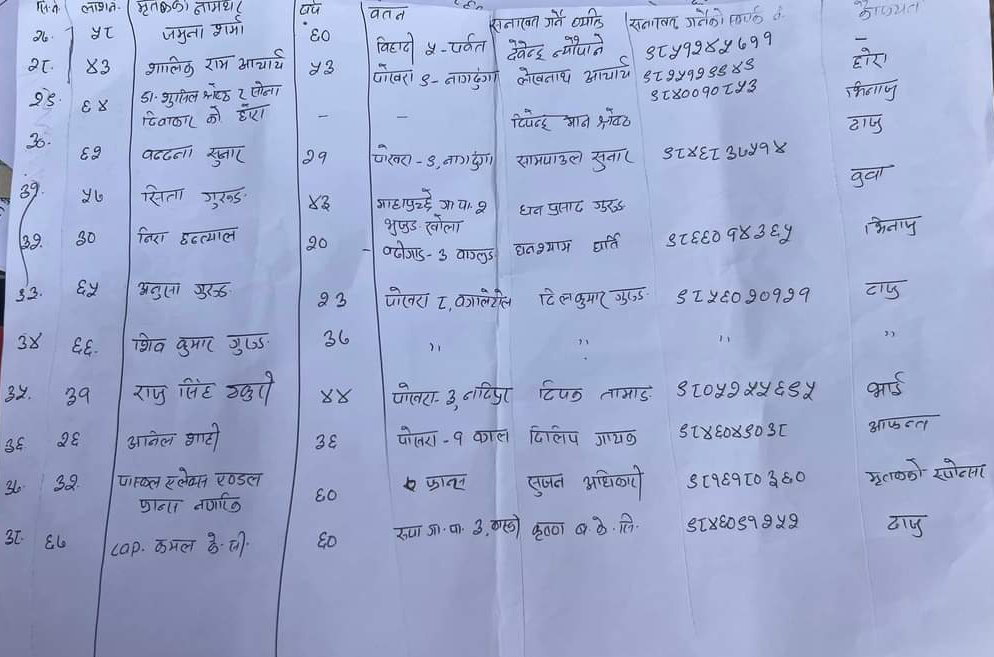 सि.नं. लाशनं. मृतकको नामथर वर्ष वतन सनाखत गर्ने व्यक्ति सनाखत गर्नेको सम्पर्क नं. कैफियत
२७. ५८ जमुना शर्मा ६० विहादी ५ - पर्वत देवेन्द्र न्यौपाने ९८५१२४५७११ -
२८. ४३ शालिक राम आचार्य ५३ पोखरा ९ - नागढुंगा लोकनाथ आचार्य ९८२५१२९९४९ छोरा
२९. ६४ डा. सुशिल श्रेष्ठ र सोना दिवाकर को छोरा - - दिपेन्द्र मान श्रेष्ठ ९८४००१०८५३ भिनाजु
३०. ६२ वन्दना सुनार २१ पोखरा - ९, नागढुंगा सामपाउल सुनार ९८४६८३७५१४ दाजु
३१. ५७ सिता गुरुङ ४३ माछापुच्छ्रे गा.पा. २ भुजुङ खोला धन प्रसाद गुरुङ बुवा
३२. ३० निरा छन्त्याल २० - वडीगाड - ३ वाग्लुङ घनश्याम घर्ति ९८६६०१४३६५ भिनाजु
३३. ६५ अनुसा गुरुङ २३ पोखरा ८, दिलकुमार गुरुङ ९८५६०२०१२१ दाजु
३४ ६६. शिव कुमार गुरुङ ३७ ,, ,, ,, ,,
३५. ३१ राजु सिंह ठकुरी ४४ पोखरा - ३, नदिपुर दिपक तामाङ ९८०५२५५६९५ भाई
३६ २६ अनिल शाही ३६ पोखरा - १ दिलिप गायक ९८४६०४९०३८ आफन्त
३७ ३२. फ्रान्स नागरिक ६० फ्रान्स सुजन अधिकारी ९८१६१८०३६० मृतकको स्पोन्सर
३८. ६७ cap. कमल के.सी. ६० रुपा गा.पा. ३, कास्की कृष्ण ब. के.सि. ९८४६०९१२५२ दाजु